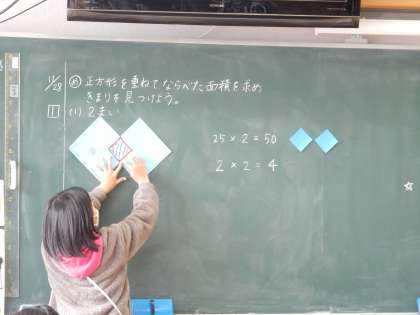 11/28 め 正方形を重ねてならべた面積を求め
きまりを見つけよう。
1 (1) 2まい
25×2=50
2×2=4